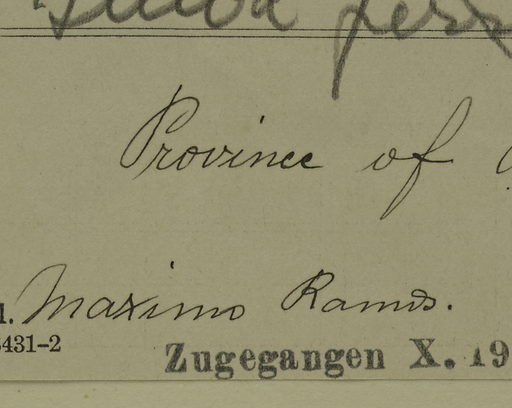 Province of
1. Maximo Ramos.
431-2
Zugegangen X. 19